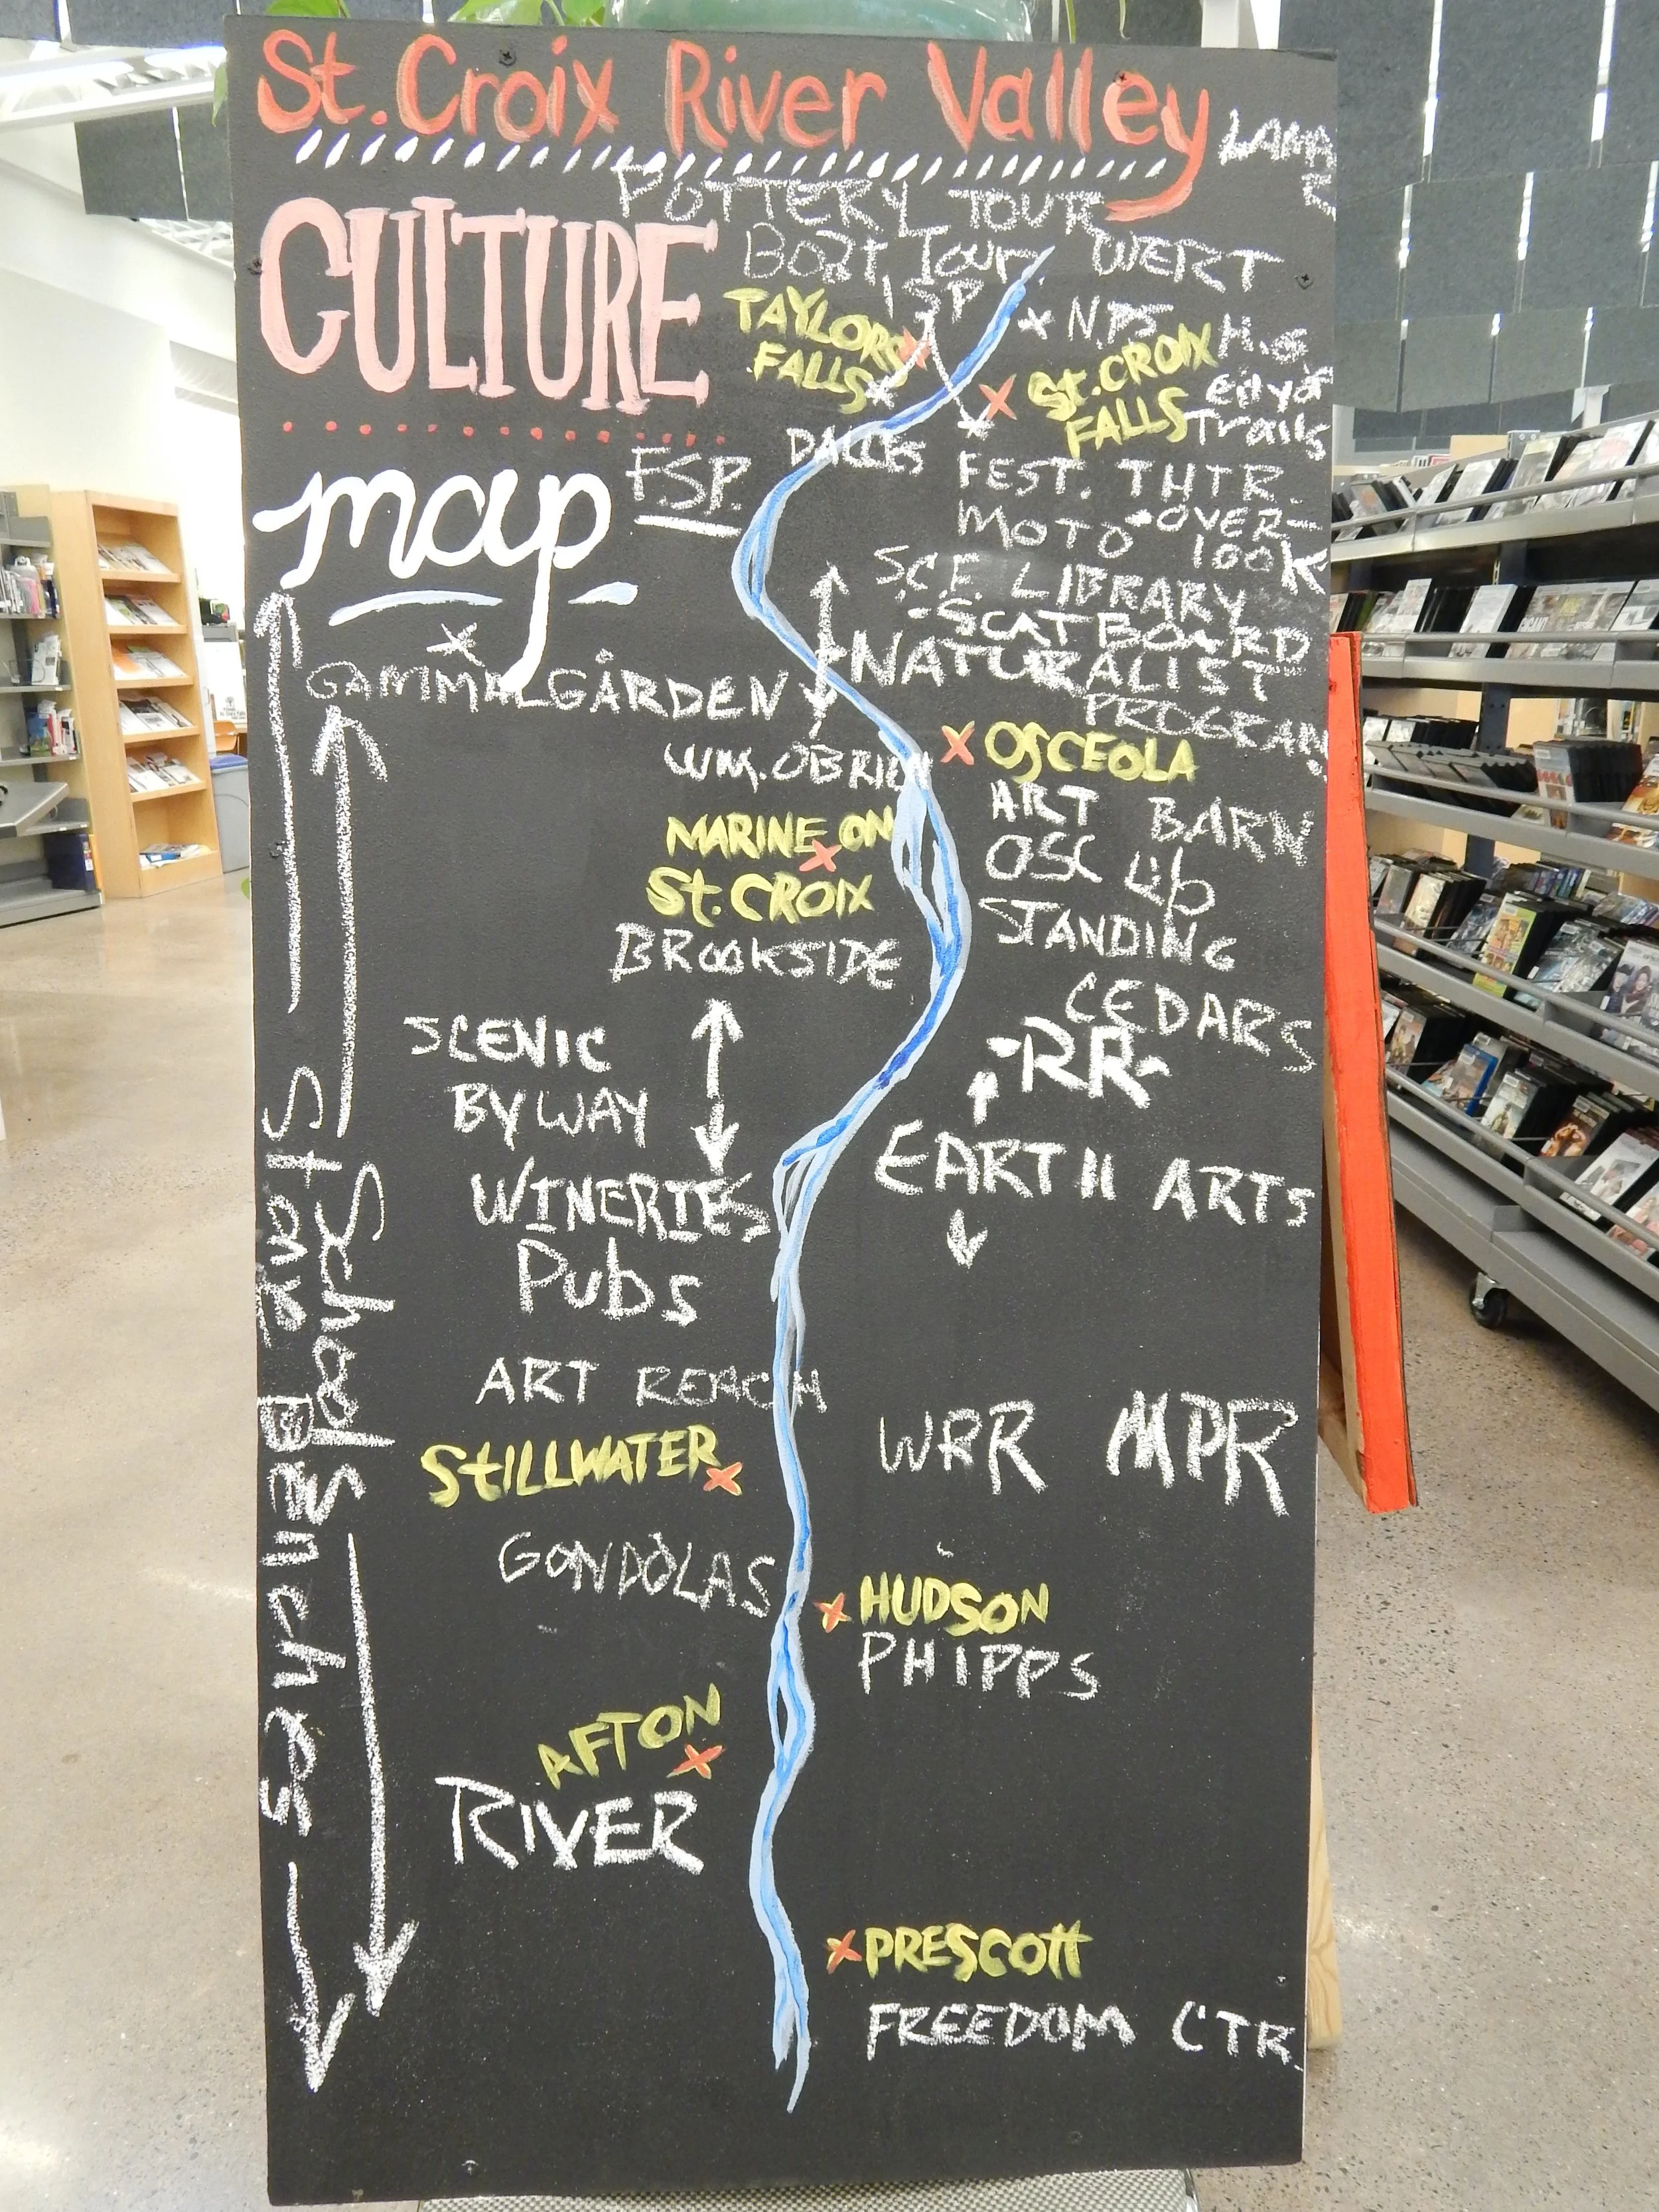 St. Croix River Valley
LAMA
POTTERY TOUR
CULTURE
Boat Tour
WERT
ISP
* NPS
TAYLORS
FALLS
ST. CROIX
FALLS
H.S
city of
Trails
DALLES
map
FSP.
FEST. THTR.
MOTO - OVER-
look
SCF. LIBRARY
- SCAT BOARD
NATURALIST
PROGRAM
GAMMALGÅRDEN
WM. OBRIEN
OSCEOLA
MARINE ON
ST. CROIX
ART BARN
OSC Lib
BROOKSIDE
STANDING
CEDARS
SCENIC
BYWAY
-RR-
EARTH ARTS
WINERIES
Pubs
ART REACH
STILLWATER
WRR MPR
GONDOLAS
HUDSON
PHIPPS
AFTON
RIVER
PRESCOTT
FREEDOM CTR.